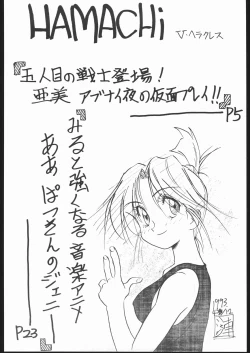 HAMACHi
V・ヘラクレス
『五人目の戦士登場！
亜美 アブナイ夜の仮面プレイ!!』
P5
『みると強くなる音楽アニメ
ああ ぱつきんのジェニー』
P23
1993